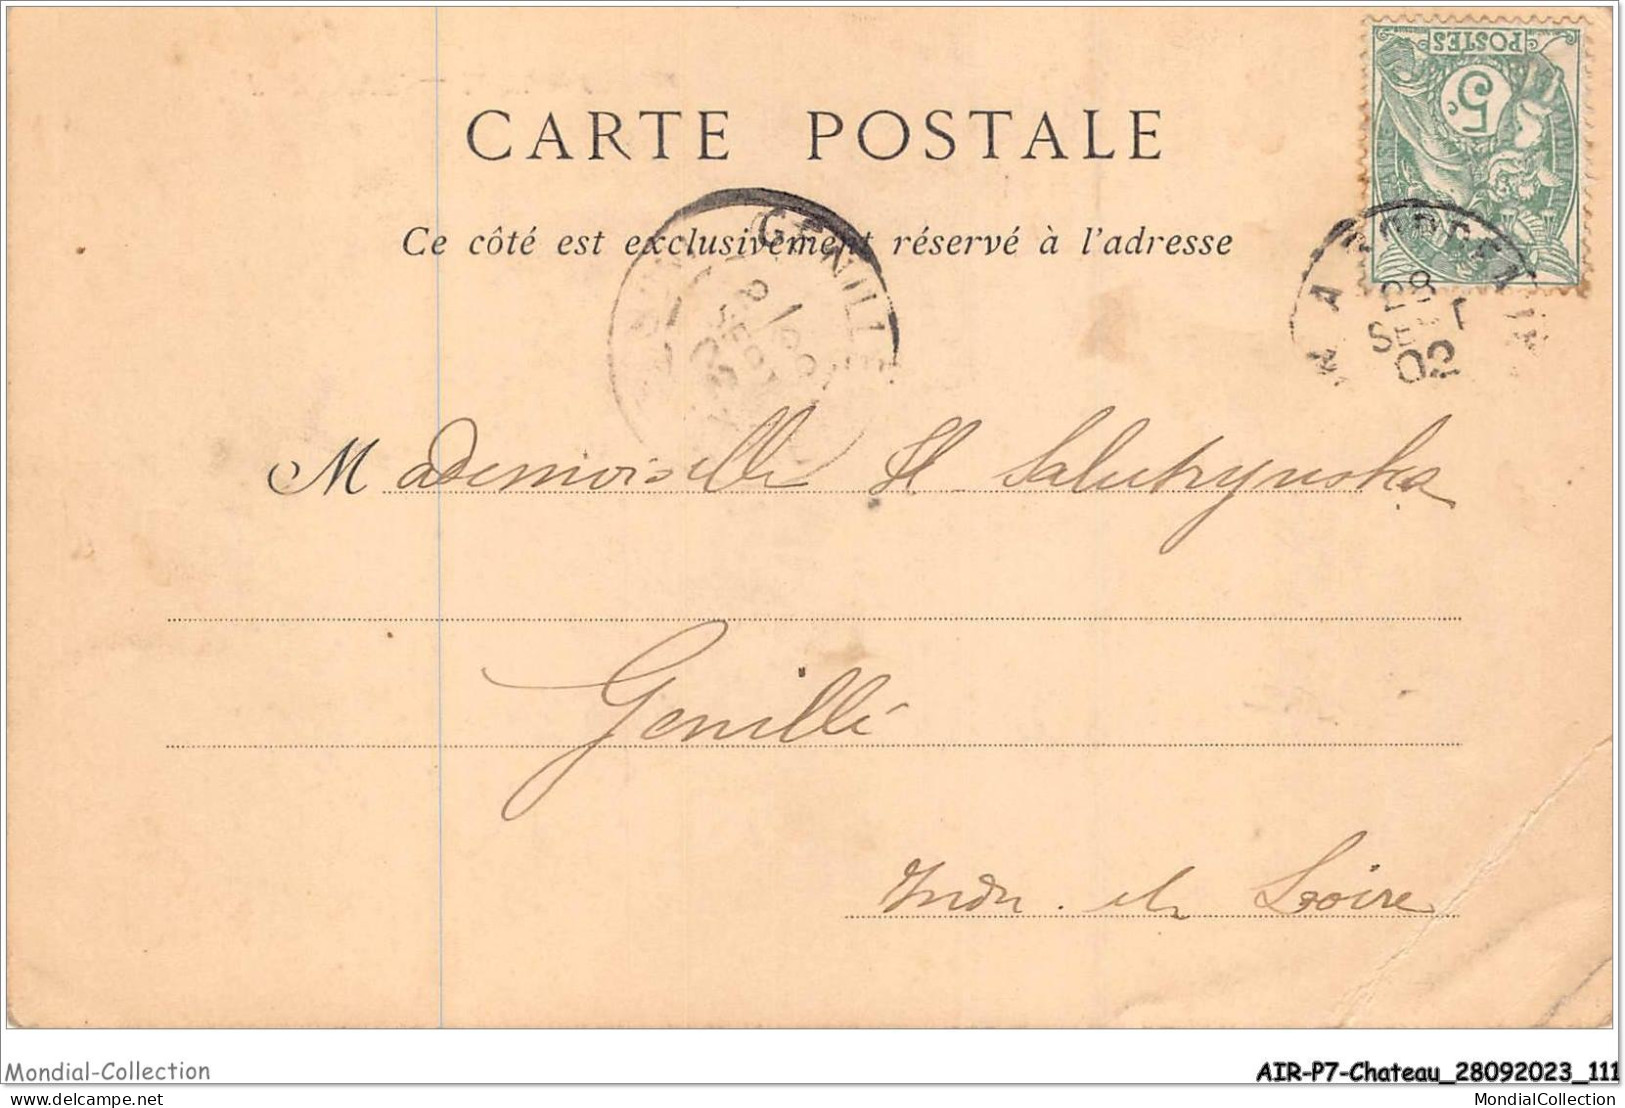 POSTES
5c
CARTE POSTALE
Ce côté est exclusivement réservé à l'adresse
GENILLÉ
28
SEPT
02
Mademoiselle H Salutrynska
Genillé
Indre et Loire
Mondial-Collection
AIR-P7-Chateau_28092023_111
delcampe.net
MondialCollection